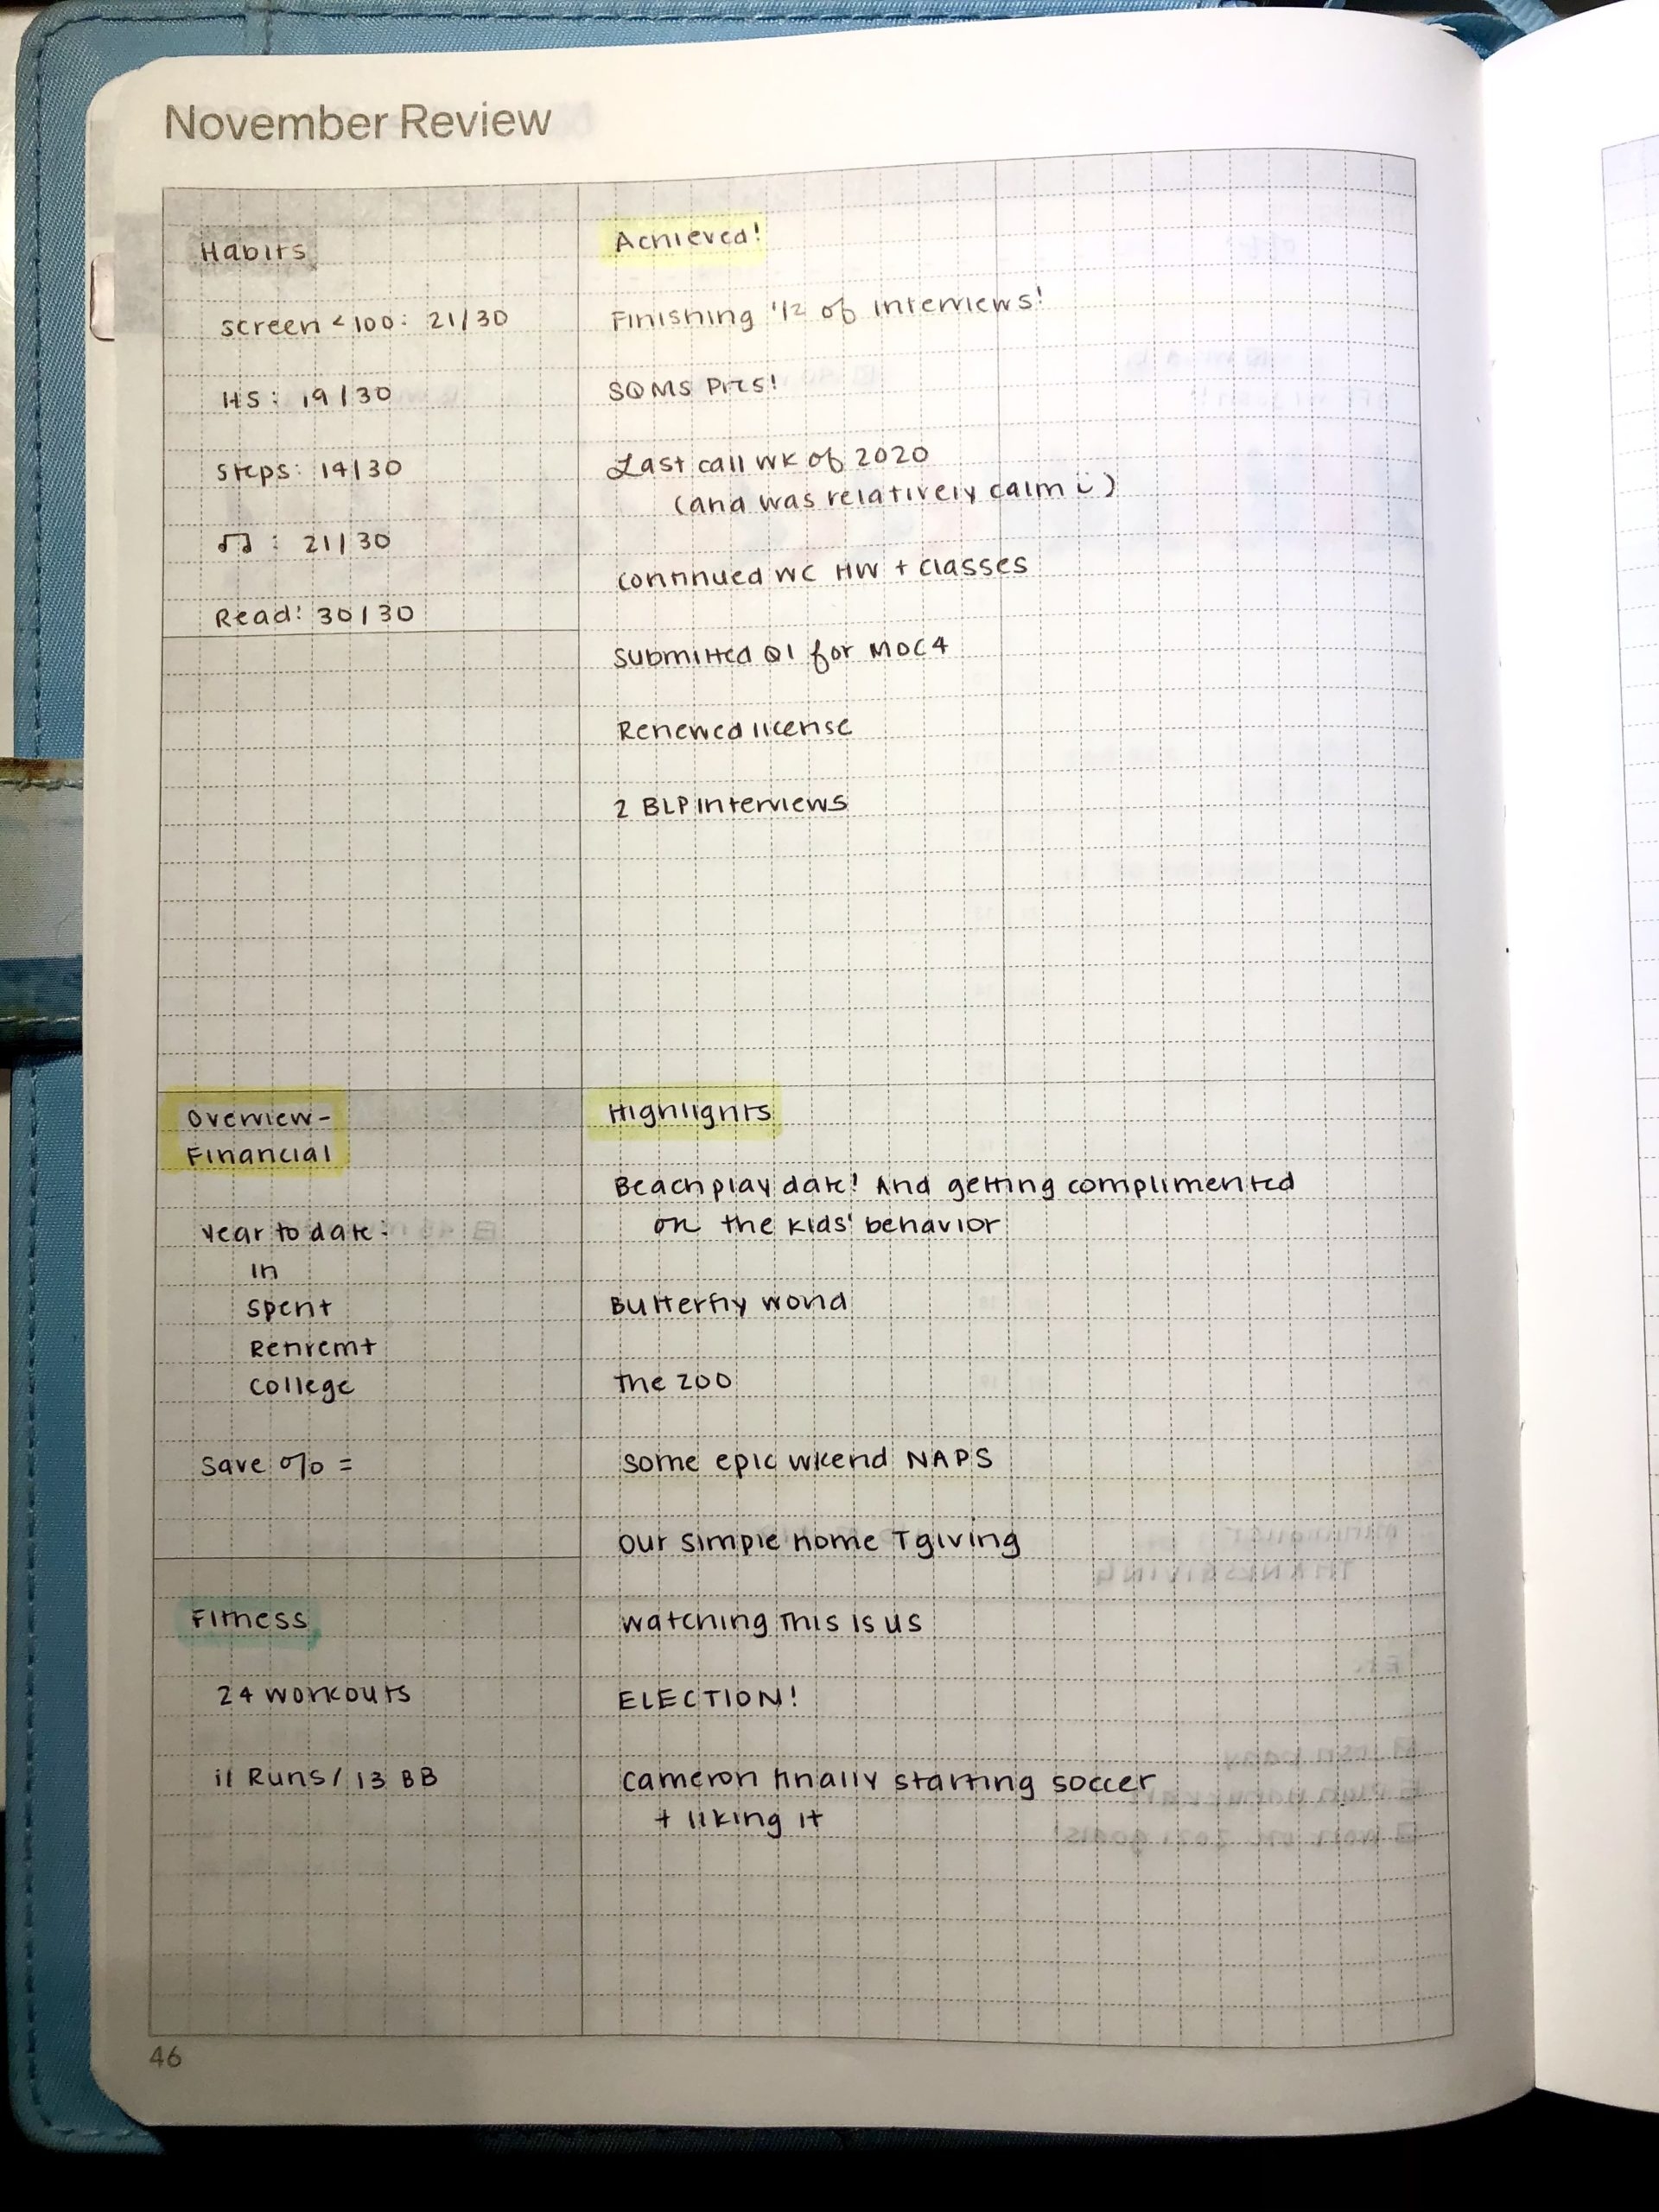 November Review
Habits
screen <100: 21/30
HS: 19/30
Steps: 14/30
♫: 21/30
Read: 30/30
Achieved!
Finishing 1/2 of interviews!
SQMS Pres!
Last call wk of 2020
(and was relatively calm :)
continued WC HW + classes
submitted Q1 for MOC4
Renewed license
2 BLP interviews
Overview-
Financial
Year to date:
in
spent
Retiremt
college
save % =
Fitness
24 workouts
11 Runs / 13 BB
Highlights
Beach play date! And getting complimented
on the kids' behavior
Butterfly world
the zoo
some epic wkend NAPS
our simple home Tgiving
watching This is us
ELECTION!
Cameron finally starting soccer
+ liking it
46